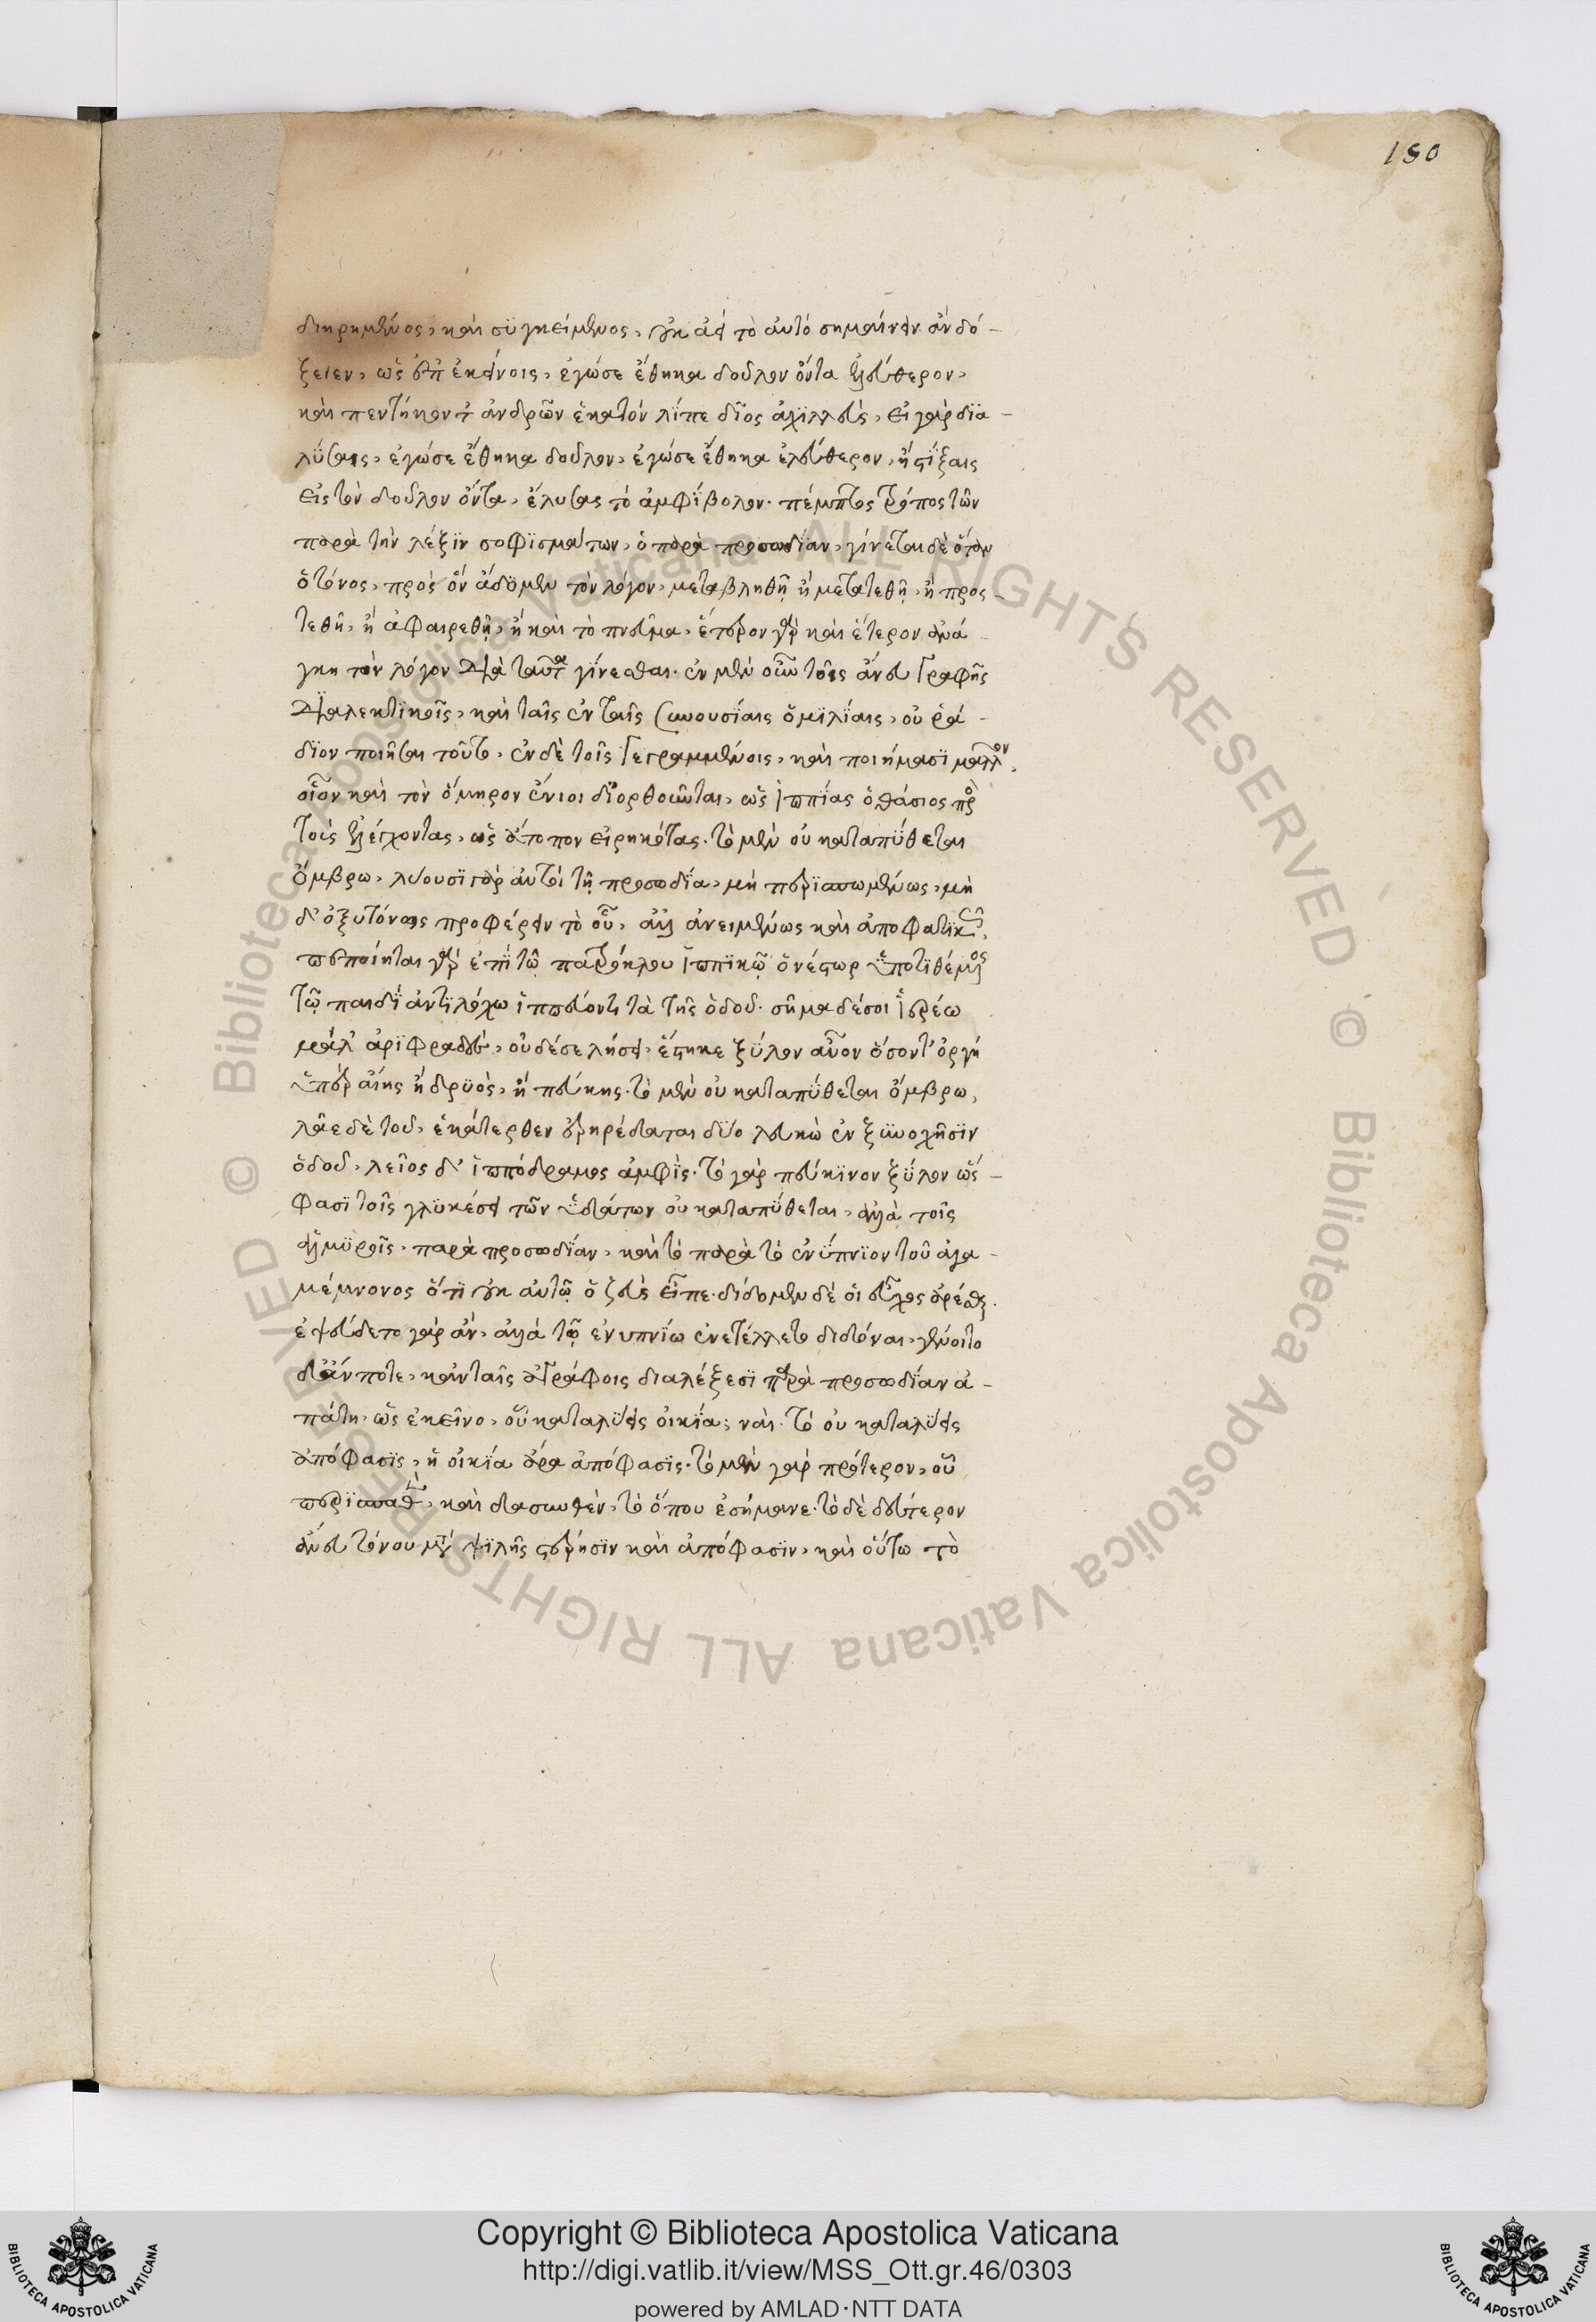 180
διηρημένος, καὶ συγκείμενος, οὐκ ἀεὶ τὸ αὐτό σημαίνειν ἂν δό-
ξειεν, ὡς ἐπ' ἐκείνοις, ἐγώ σε ἔθηκα δοῦλον ὄντα ἐλεύθερον,
καὶ πεντήκοντ' ἀνδρῶν ἑκατόν λίπε δῖος ἀχιλλεὺς, εἰ γὰρ δια-
λύσαις, ἐγώ σε ἔθηκα δοῦλον, ἐγώ σε ἔθηκα ἐλεύθερον, ἢ στίξαις
εἰς τὸν δοῦλον ὄντα, ἔλυσας τὸ ἀμφίβολον. πέμπτος τρόπος τῶν
παρὰ τὴν λέξιν σοφισμάτων, ὁ παρὰ προσωδίαν, γίνεται δὲ ὅταν
ὁ τόνος, πρὸς ὃν ἄδομεν τὸν λόγον, μεταβληθῇ ἢ μετατεθῇ, ἢ προς-
τεθῇ, ἢ ἀφαιρεθῇ, ἢ καὶ τὸ πνεῦμα, ἕτερον γὰρ καὶ ἕτερον ἀνά-
γκη τὸν λόγον διὰ ταῦτα γίνεσθαι. ἐν μὲν οὖν τοῖς ἄνευ γραφῆς
διαλεκτικοῖς, καὶ ταῖς ἐν ταῖς συνουσίαις ὁμιλίαις, οὐ ῥά-
διον ποιῆσαι τοῦτο, ἐν δὲ τοῖς γεγραμμένοις, καὶ ποιήμασι μᾶλλον,
οἷον καὶ τὸν ὅμηρον ἔνιοι διορθοῦνται, ὡς ἱππίας ὁ θάσιος πρὸς
τοὺς ἐλέγχοντας, ὡς ἄτοπον εἰρηκότας. τὸ μὲν οὐ καταπύθεται
ὄμβρω, λύουσι γὰρ αὐτὸ τῇ προσωδία, μὴ περισπωμένως, μὴ
δ' ὀξυτόνως προφέρειν τὸ οὗ, ἀλλ' ἀνειμένως καὶ ἀποφατικῶς,
πεποίηται γὰρ ἐπὶ τῷ πατρόκλου ἱππικῷ ὁ νέστωρ ὑποτιθέμενος
τῷ παιδὶ ἀντιλόχω ἱππεύοντι τὰ τῆς ὁδοῦ. σῆμα δέ σοι ἐρέω
μάλ' ἀριφραδὲς, οὐδέ σε λήσει, ἕστηκε ξύλον αὖον ὅσον τ' ὀργή
ὑπὲρ αἴης ἢ δρυὸς, ἢ πεύκης. τὸ μὲν οὐ καταπύθεται ὄμβρω,
λᾶε δὲ τοῦ, ἑκάτερθεν ἐρηρέδαται δύο λευκὼ ἐν ξυνοχῇσιν
ὁδοῦ, λεῖος δ' ἱππόδρομος ἀμφὶς. τὸ γὰρ πεύκινον ξύλον ὥς-
φασι τοῖς γλυκέσι τῶν ὑδάτων οὐ καταπύθεται, ἀλλὰ τοῖς
ἁλμυροῖς. παρὰ προσωδίαν, καὶ τὸ παρὰ τὸ ἐνύπνιον τοῦ ἀγα-
μέμνονος ὅτι οὐκ αὐτῷ ὁ ζεὺς εἶπε. δίδομεν δὲ οἱ εὖχος ἀρέσθαι.
ἐψεύδετο γὰρ ἂν, ἀλλὰ τῷ ἐνυπνίω ἐνετέλλετο διδόναι, γένοιτο
δ' ἄν ποτε, κἀν ταῖς ἀγράφοις διαλέξεσι παρὰ προσωδίαν ἀ-
πάτη, ὡς ἐκεῖνο, οὗ καταλύεις οἰκία; ναὶ. τὸ οὐ καταλύεις
ἀπόφασις, ἡ οἰκία ἄρα ἀπόφασις. τὸ μὲν γὰρ πρότερον, οὗ
περισπασθὲν, καὶ δασυνθὲν, τὸ ὅπου ἐσήμανε. τὸ δὲ δεύτερον
ἄνευ τόνου μετὰ ψιλῆς στέρησιν καὶ ἀπόφασιν, καὶ οὕτω τὸ
© Biblioteca Apostolica Vaticana ALL RIGHTS RESERVED © Biblioteca Apostolica Vaticana ALL RIGHTS RESERVED
BIBLIOTECA APOSTOLICA VATICANA
Copyright © Biblioteca Apostolica Vaticana
http://digi.vatlib.it/view/MSS_Ott.gr.46/0303
powered by AMLAD·NTT DATA
BIBLIOTECA APOSTOLICA VATICANA